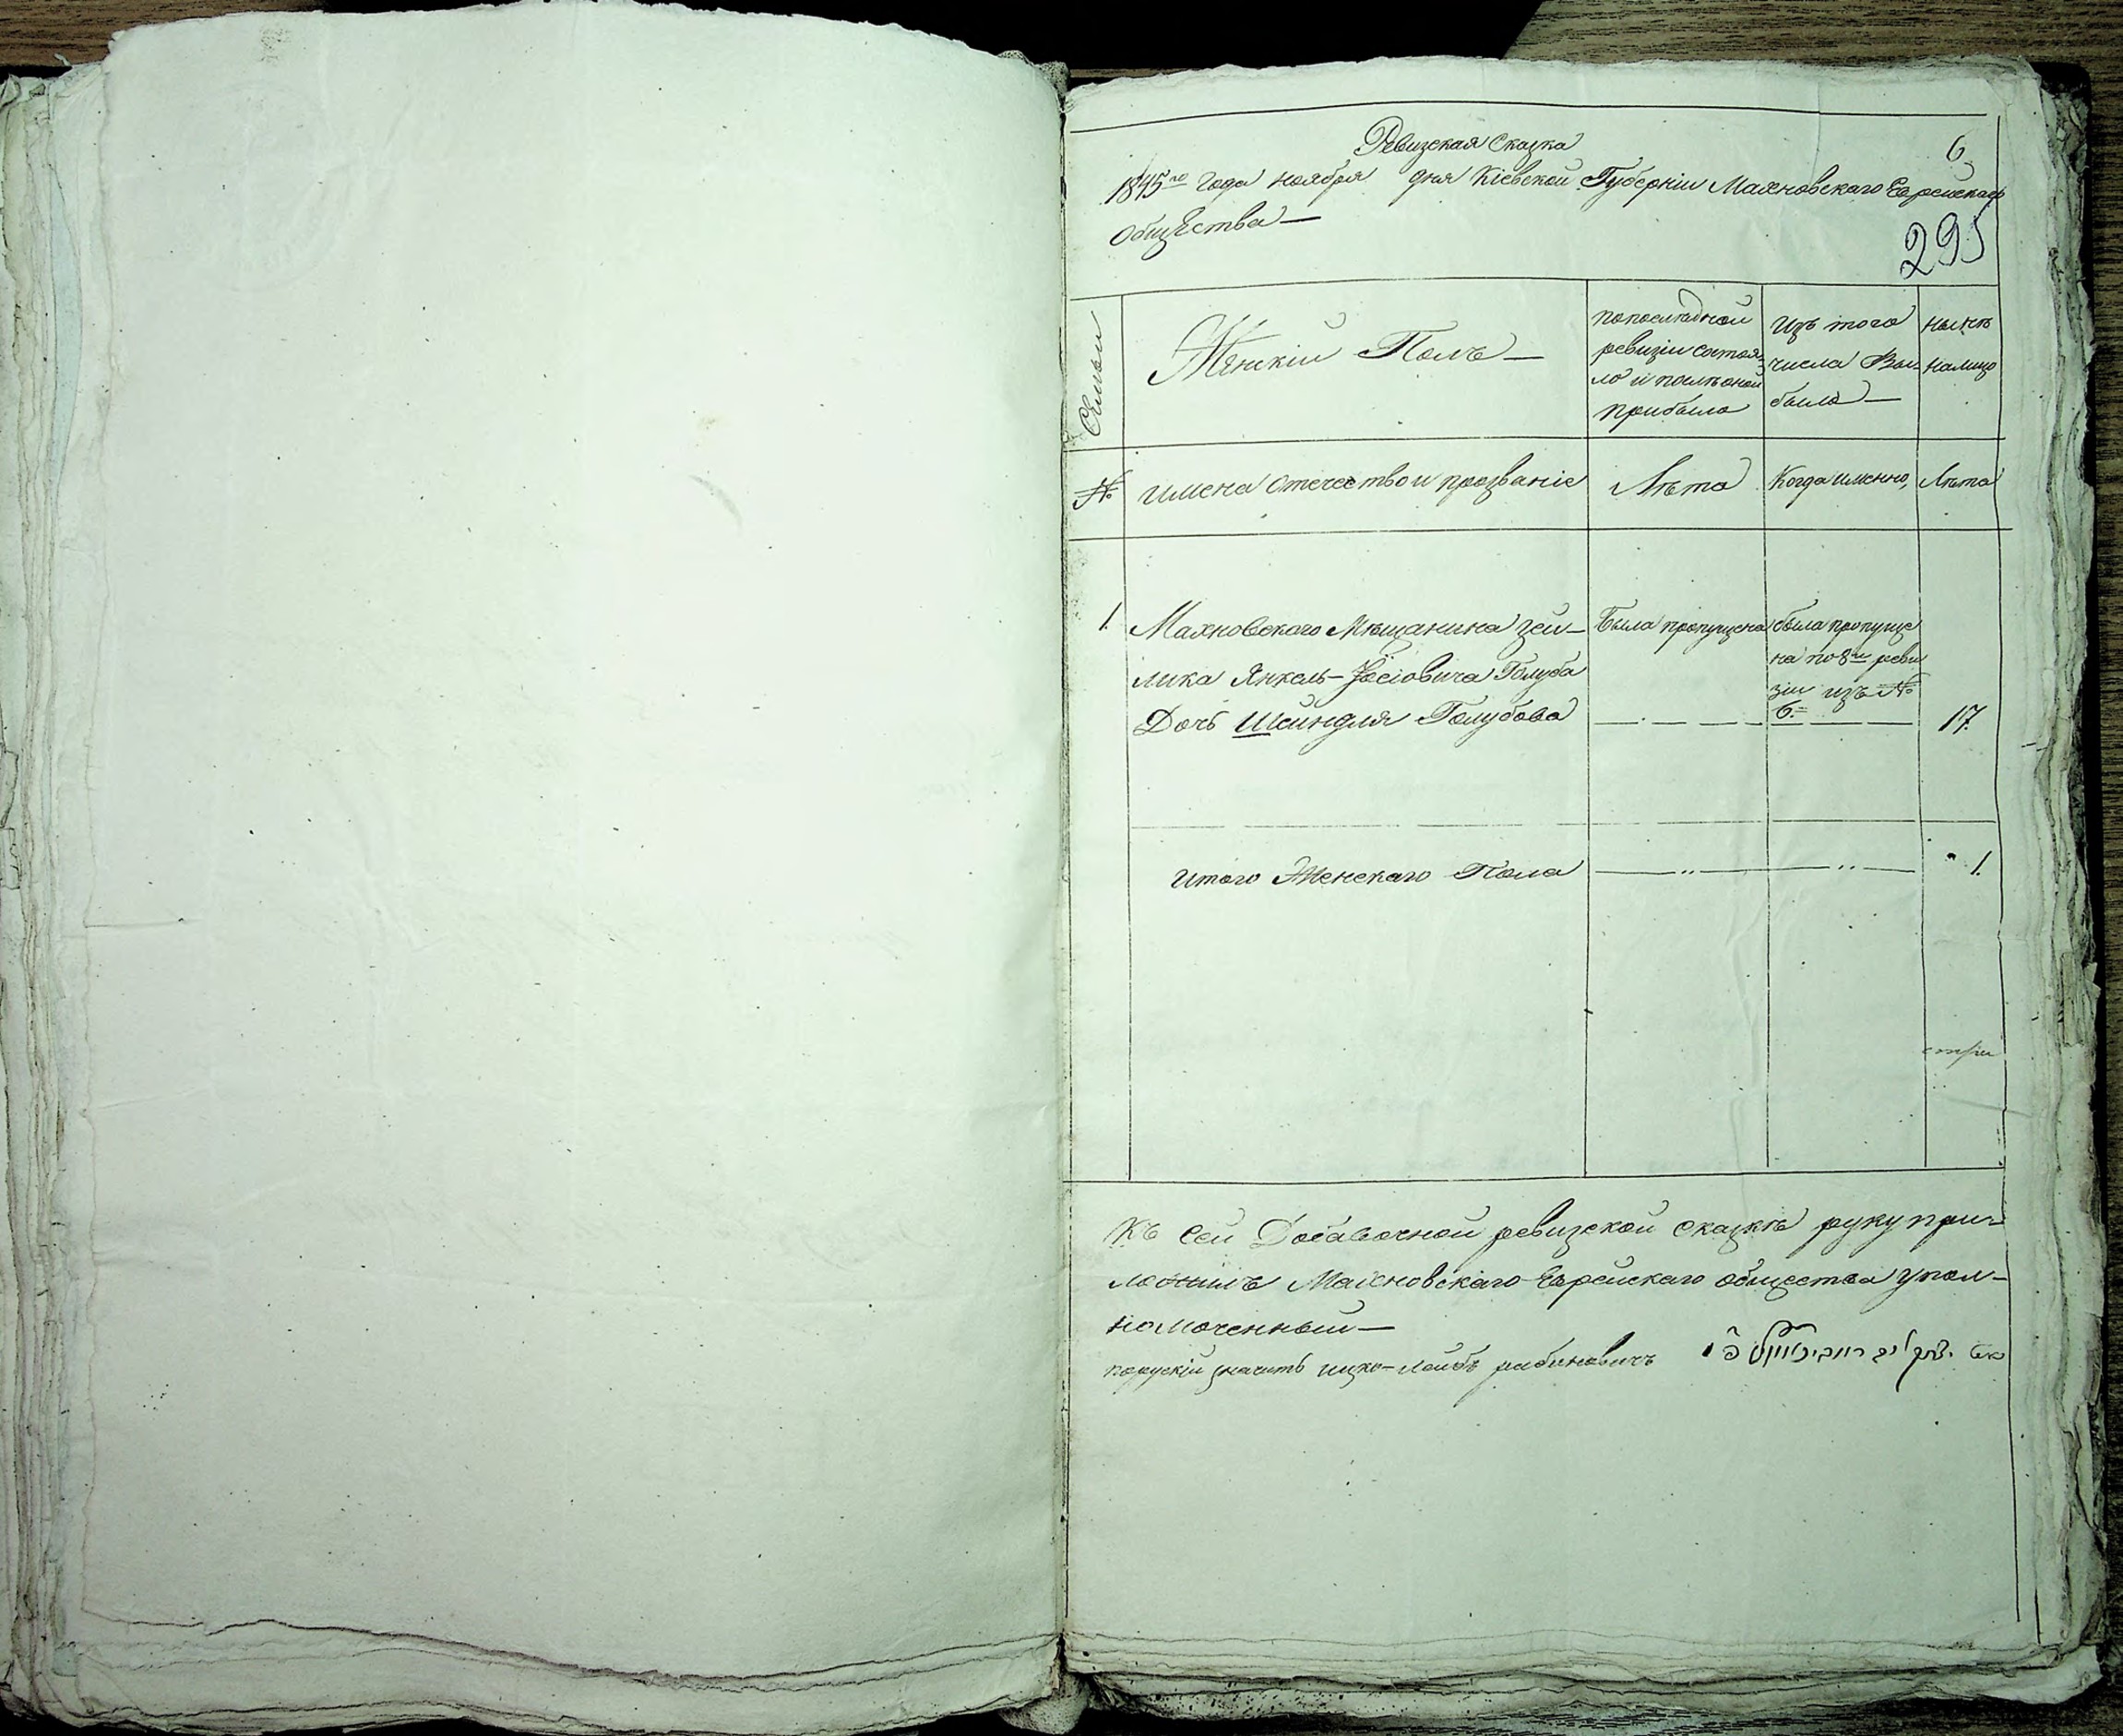 Ревизская Сказка
6
1845го года ноября дня Кіевской Губерніи Махновскаго Еврейскаго
Общества —
295
Семьи
Женскій Полъ —
по последней
ревизіи состоя-
ло и после оной
прибыло
Изъ того
числа Вы-
было —
ныне
налицо
№
имена отечество и прозваніе
Лѣта
Когда именно,
Лѣта
1.
Махновского Мѣщанина Зей-
лика Янкель-Іосіовича Голуба
Дочь Шейндля Голубова
Была пропущена
была пропуще
на по 8й реви
зіи изъ №
6.
17.
Итого Женскаго Пола
1.
Къ сей Добавочной ревизской сказкѣ руку при-
ложилъ Махновскаго Еврейскаго общества упол-
номоченный —
порускій значить ицко-лейбъ рабиновичъ